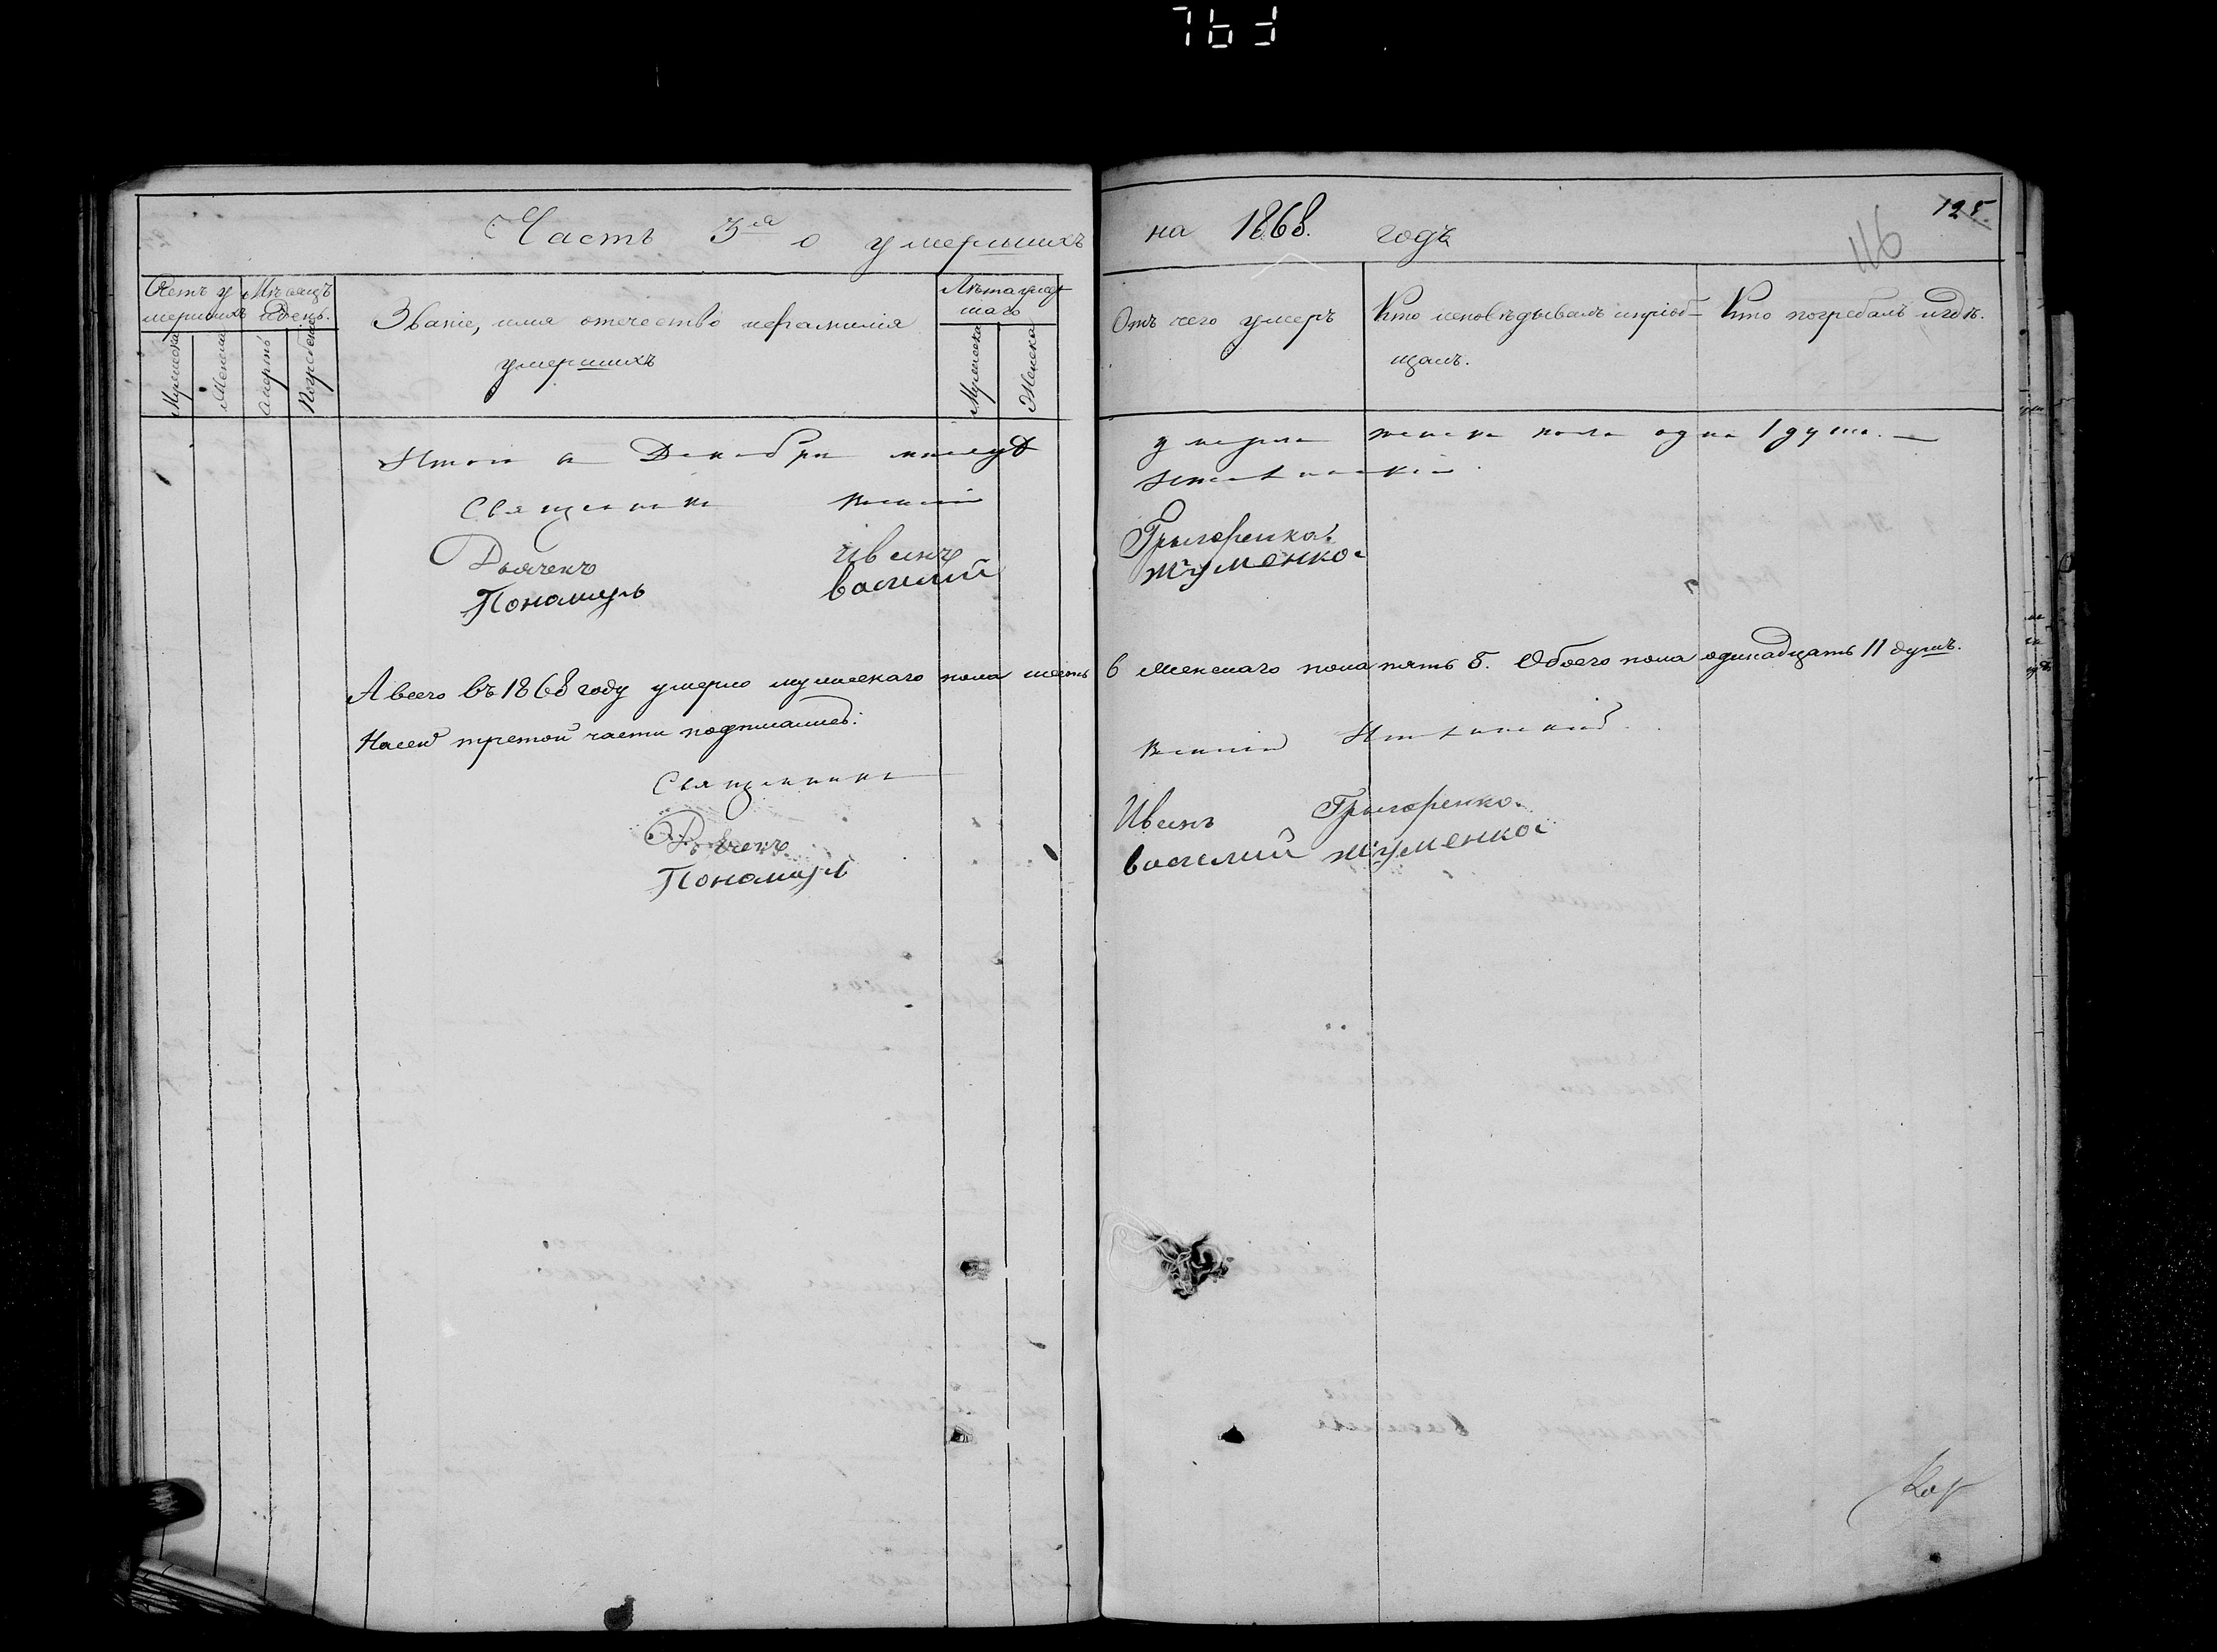 763
Часть 3я о умершихъ на 1868. годъ
125.
116
Счетъ умершихъ
Мѣсяцъ и день.
Званіе, имя отечество и фамилія умершихъ
Лѣта умершаго
Отъ чего умеръ
Кто исповѣдывалъ и пріобщалъ.
Кто погребалъ и гдѣ.
Мужеска
Женска
Смерть
Погребеніе
Мужеска
Женска
Итого в Декабрѣ месяцѣ умерла женска пола одна 1 душа.
Священникъ Василій
Дьячекъ Иванъ Григоренко.
Пономарь василий Жуменко.
А всего въ 1868 году умерло мужескаго пола шесть 6 женскаго пола пять 5. Обоего пола одинадцать 11 душъ.
На сей третой части подписались:
Священникъ Василій
Дьячекъ Иванъ Григоренко.
Пономарь василий Жуменко.